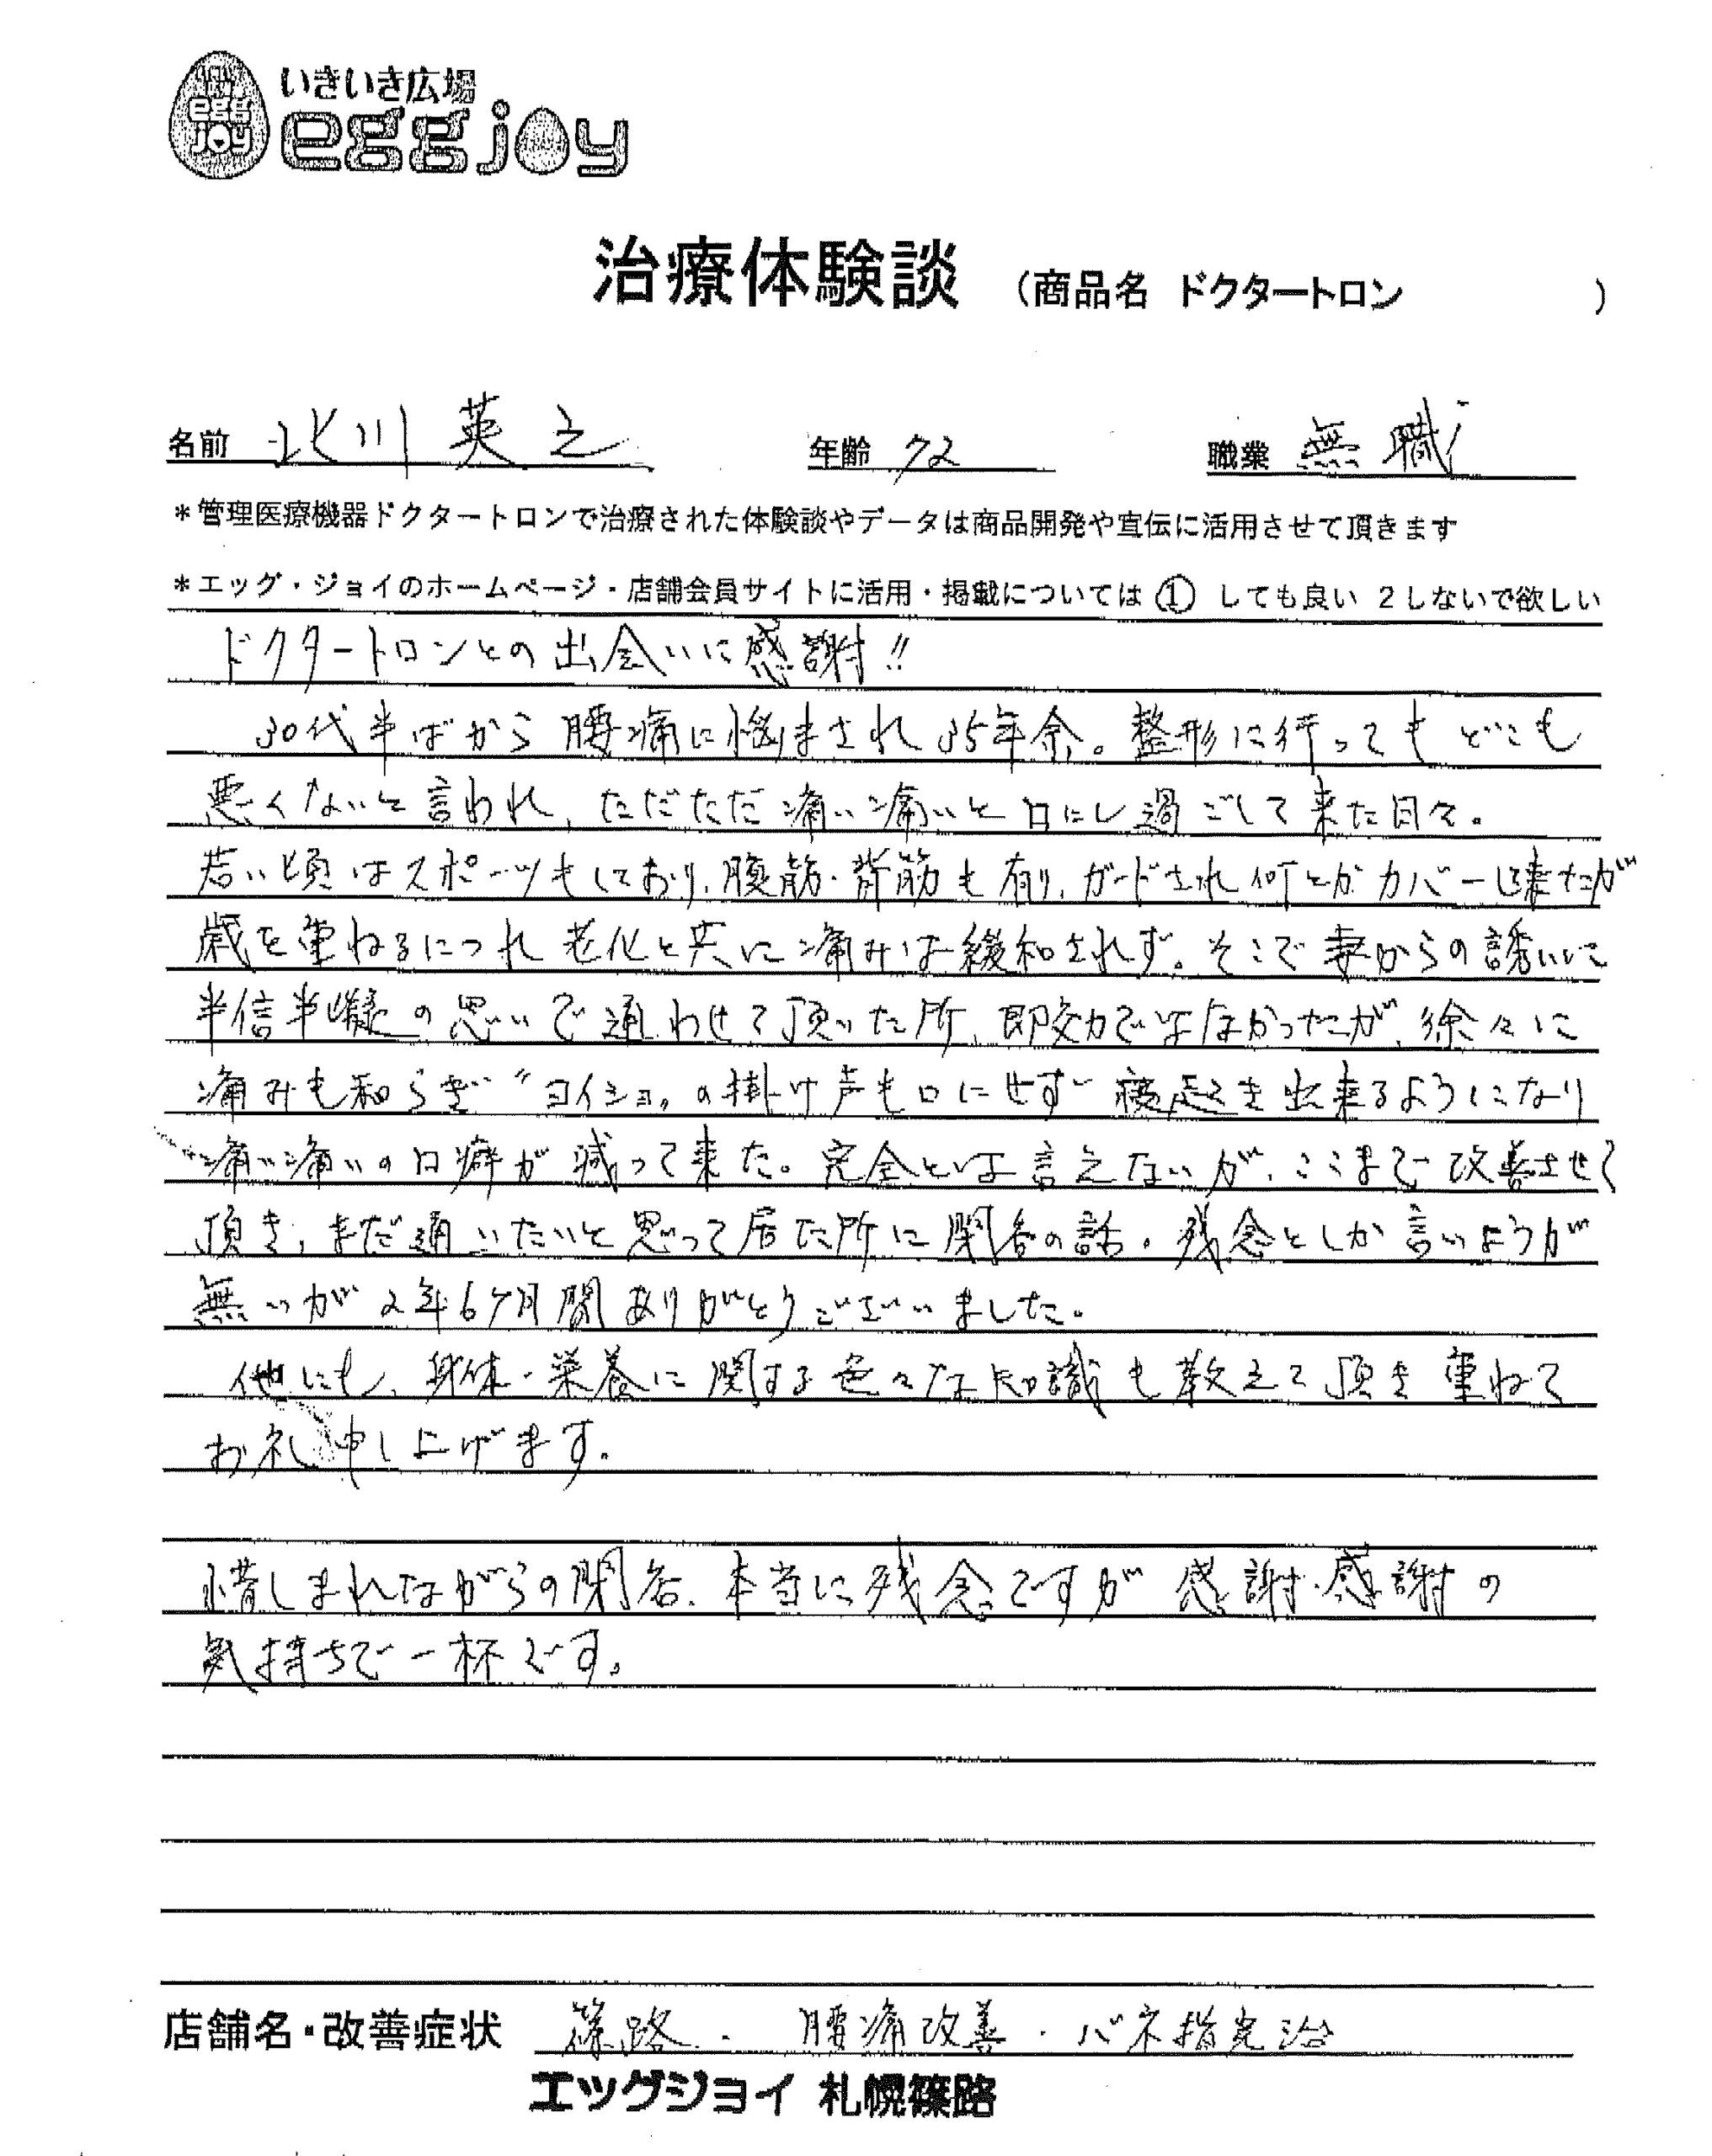 egg joy
いきいき広場
eggjoy
治療体験談 （商品名 ドクタートロン ）
名前 北川 英之 年齢 72 職業 無職
*管理医療機器ドクタートロンで治療された体験談やデータは商品開発や宣伝に活用させて頂きます
*エッグ・ジョイのホームページ・店舗会員サイトに活用・掲載については ① しても良い 2しないで欲しい
ドクタートロンとの出会いに感謝!!
30代半ばから腰痛に悩まされ35年余。整形に行ってもどこも
悪くないと言われ、ただただ痛い痛いと口にし過ごして来た日々。
若い頃はスポーツもしており、腹筋・背筋も有り、ガードされ何とかカバーし来たが
歳を重ねるにつれ老化と共に痛みは緩和されず。そこで妻からの誘いに
半信半疑の思いで通わせて頂いた所、即効力ではなかったが、徐々に
痛みも和らぎ“ヨイショ〟の掛け声も口にせず寝起き出来るようになり
痛い痛いの口癖が減って来た。完全とは言えないが、ここまで改善させて
頂き、まだ通いたいと思って居た所に閉店の話。残念としか言いようが
無いが2年6ケ月間ありがとうございました。
他にも、身体・栄養に関する色々な知識も教えて頂き重ねて
お礼申し上げます。
惜しまれながらの閉店、本当に残念ですが感謝・感謝の
気持ちで一杯です。
店舗名・改善症状 篠路 ・ 腰痛改善 ・ バネ指完治
エッグジョイ 札幌篠路